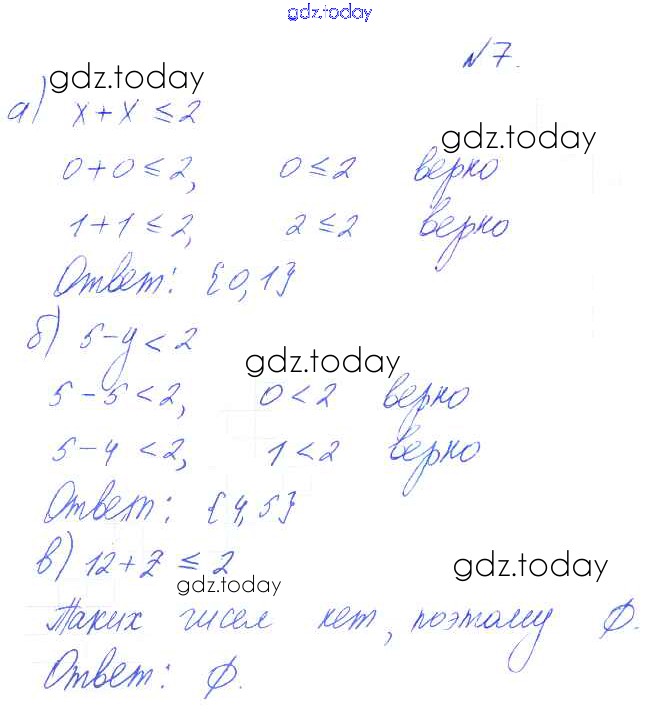 gdz.today
№7.
gdz.today
а) x+x ≤2
gdz.today
0+0≤2, 0≤2 верно
1+1≤2, 2≤2 верно
Ответ: {0,1}
б) 5-y<2
gdz.today
5-5<2, 0<2 верно
5-4<2, 1<2 верно
Ответ: {4,5}
в) 12+z≤2
gdz.today
gdz.today
Таких чисел нет, поэтому ∅.
Ответ: ∅.